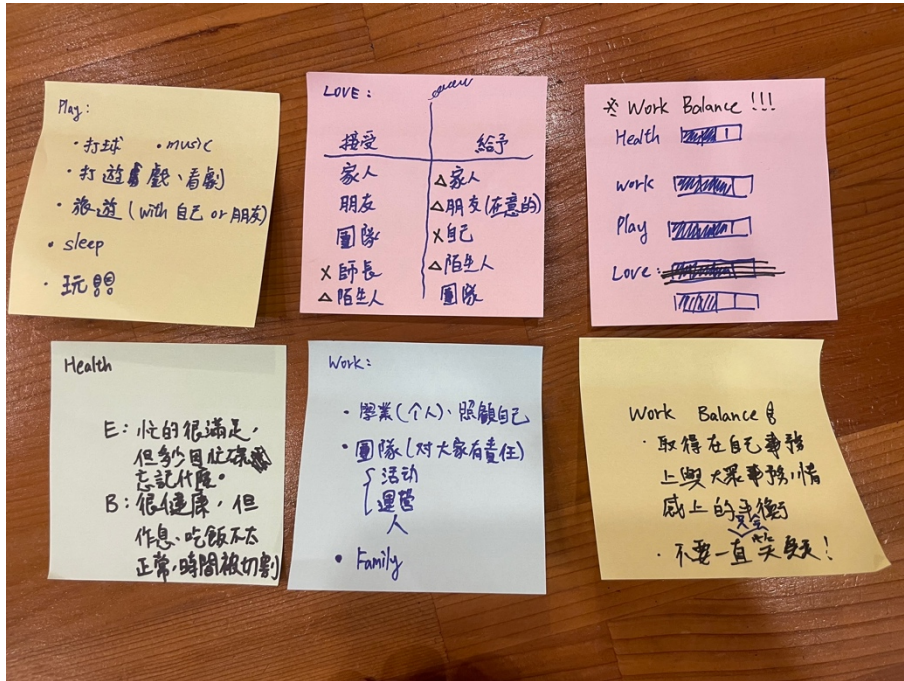 Play:
・打球 ・music
・打遊戲、看劇
・旅遊(with 自己 or 朋友)
・sleep
・玩
LOVE:
接受 給予
家人 △家人
朋友 △朋友(在意的)
團隊 X自己
X師長 △陌生人
△陌生人 團隊
※ Work Balance !!!
Health
work
Play
Love:
Health
E: 忙的很滿足,
但多少因忙碌
忘記什麼。
B: 很健康,但
作息、吃飯不太
正常,時間被切割
Work:
・學業(个人)、照顧自己
・團隊(对大家有責任)
活动
運營
人
・Family
Work Balance
・取得在自己事務
上與大眾事務,情
感上的平衡
・不要一直